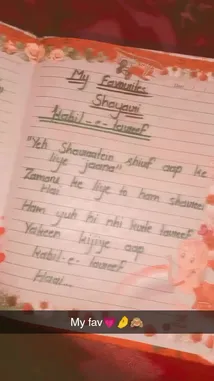 My Favourites
Shayari
Kabil-e-tareef
"Yeh Shararatein shirf aap ke
liye jaana"
Zamane ke liye to ham shareef
Hai
Ham yuh hi nhi karte tareef
Yakeen kijiye aap
Kabil-e-tareef
Haii...
My fav💗🤌🙈